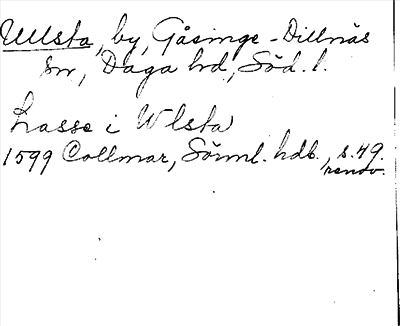 Ullsta, by, Gåsinge-Dillnäs
sn, Daga hd, Söd. l.
Lasse i Wlsta
1599 Collmar, Sörml. hdb., s. 49.
renov.